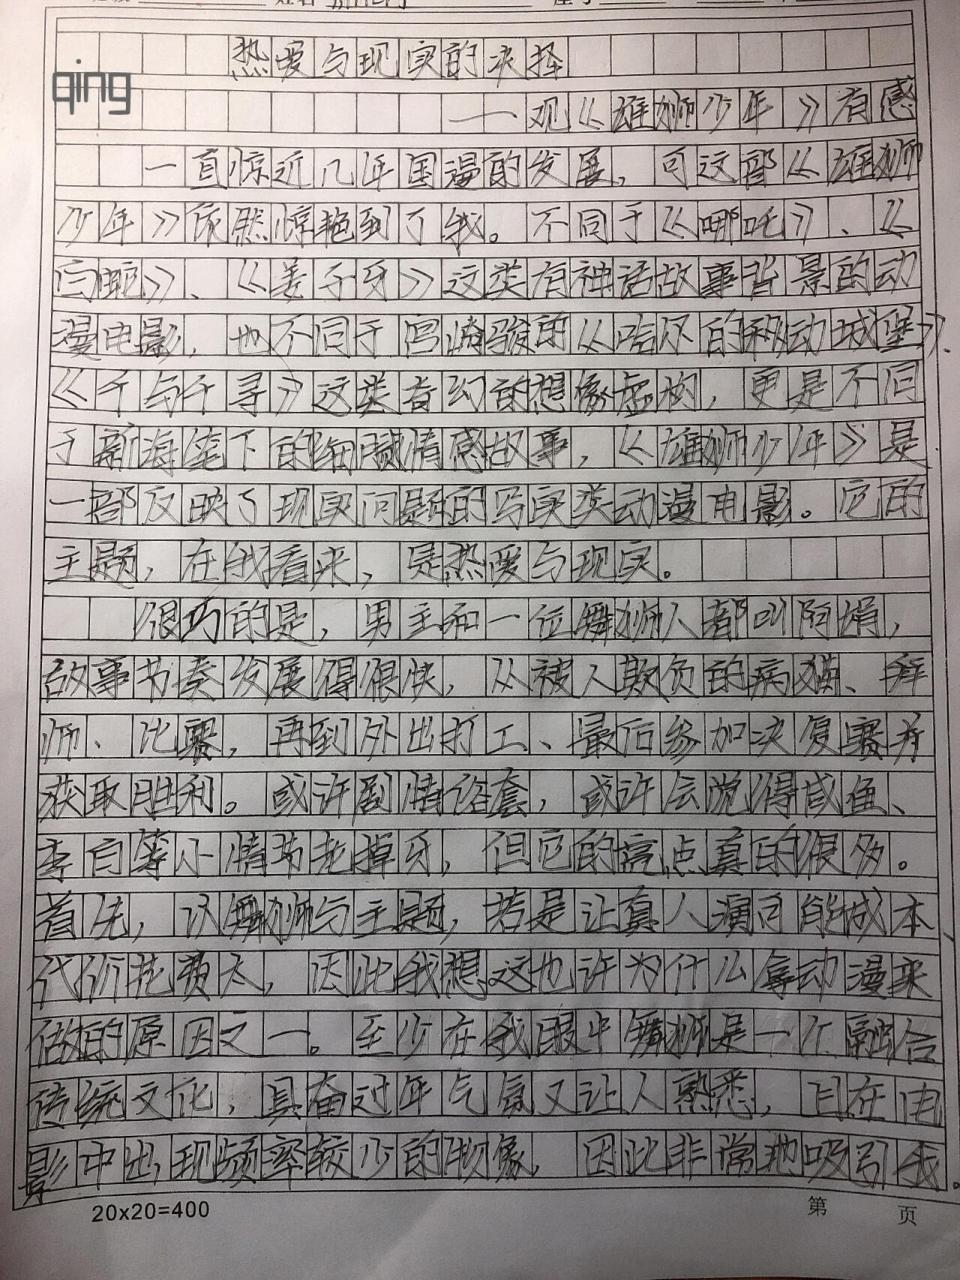 热爱与现实的决择
qing
——观《雄狮少年》有感
一直惊近几年国漫的发展，可这部《雄狮
少年》依然惊艳到了我。不同于《哪吒》、《
白蛇》、《姜子牙》这类有神话故事背景的动
漫电影，也不同于宫崎骏的《哈尔的移动城堡》、
《千与千寻》这类奇幻的想像虚构，更是不同
于新海笔下的细腻情感故事，《雄狮少年》是
一部反映了现实问题的写实类动漫电影。它的
主题，在我看来，是热爱与现实。
很巧的是，男主和一位舞狮人都叫阿娟，
故事节奏发展得很快，从被人欺负的病猫、拜
师、比赛，再到外出打工、最后参加决复赛并
获取胜利。或许剧情俗套，或许会觉得咸鱼、
李白等小情节老掉牙，但它的亮点真的很多。
首先，以舞狮与主题，若是让真人演可能成本
代价花费太，因此我想这也许为什么拿动漫来
做的原因之一。至少在我眼中舞狮是一个融合
传统文化，具备过年气氛又让人熟悉，且在电
影中出现频率较少的物像，因此非常地吸引我。
20×20=400
第 页